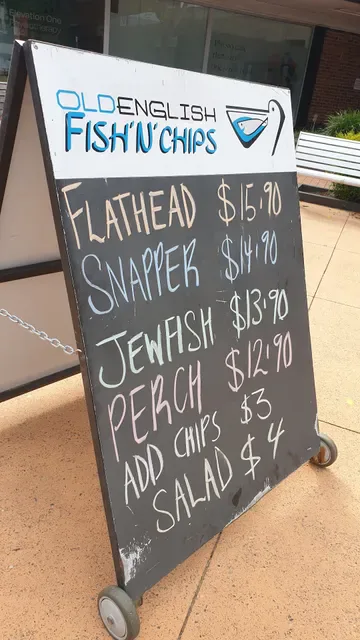 OLDENGLISH
FISH'N'CHIPS
FLATHEAD $15.90
SNAPPER $14.90
JEWFISH $13.90
PERCH $12.90
ADD CHIPS $3
SALAD $4